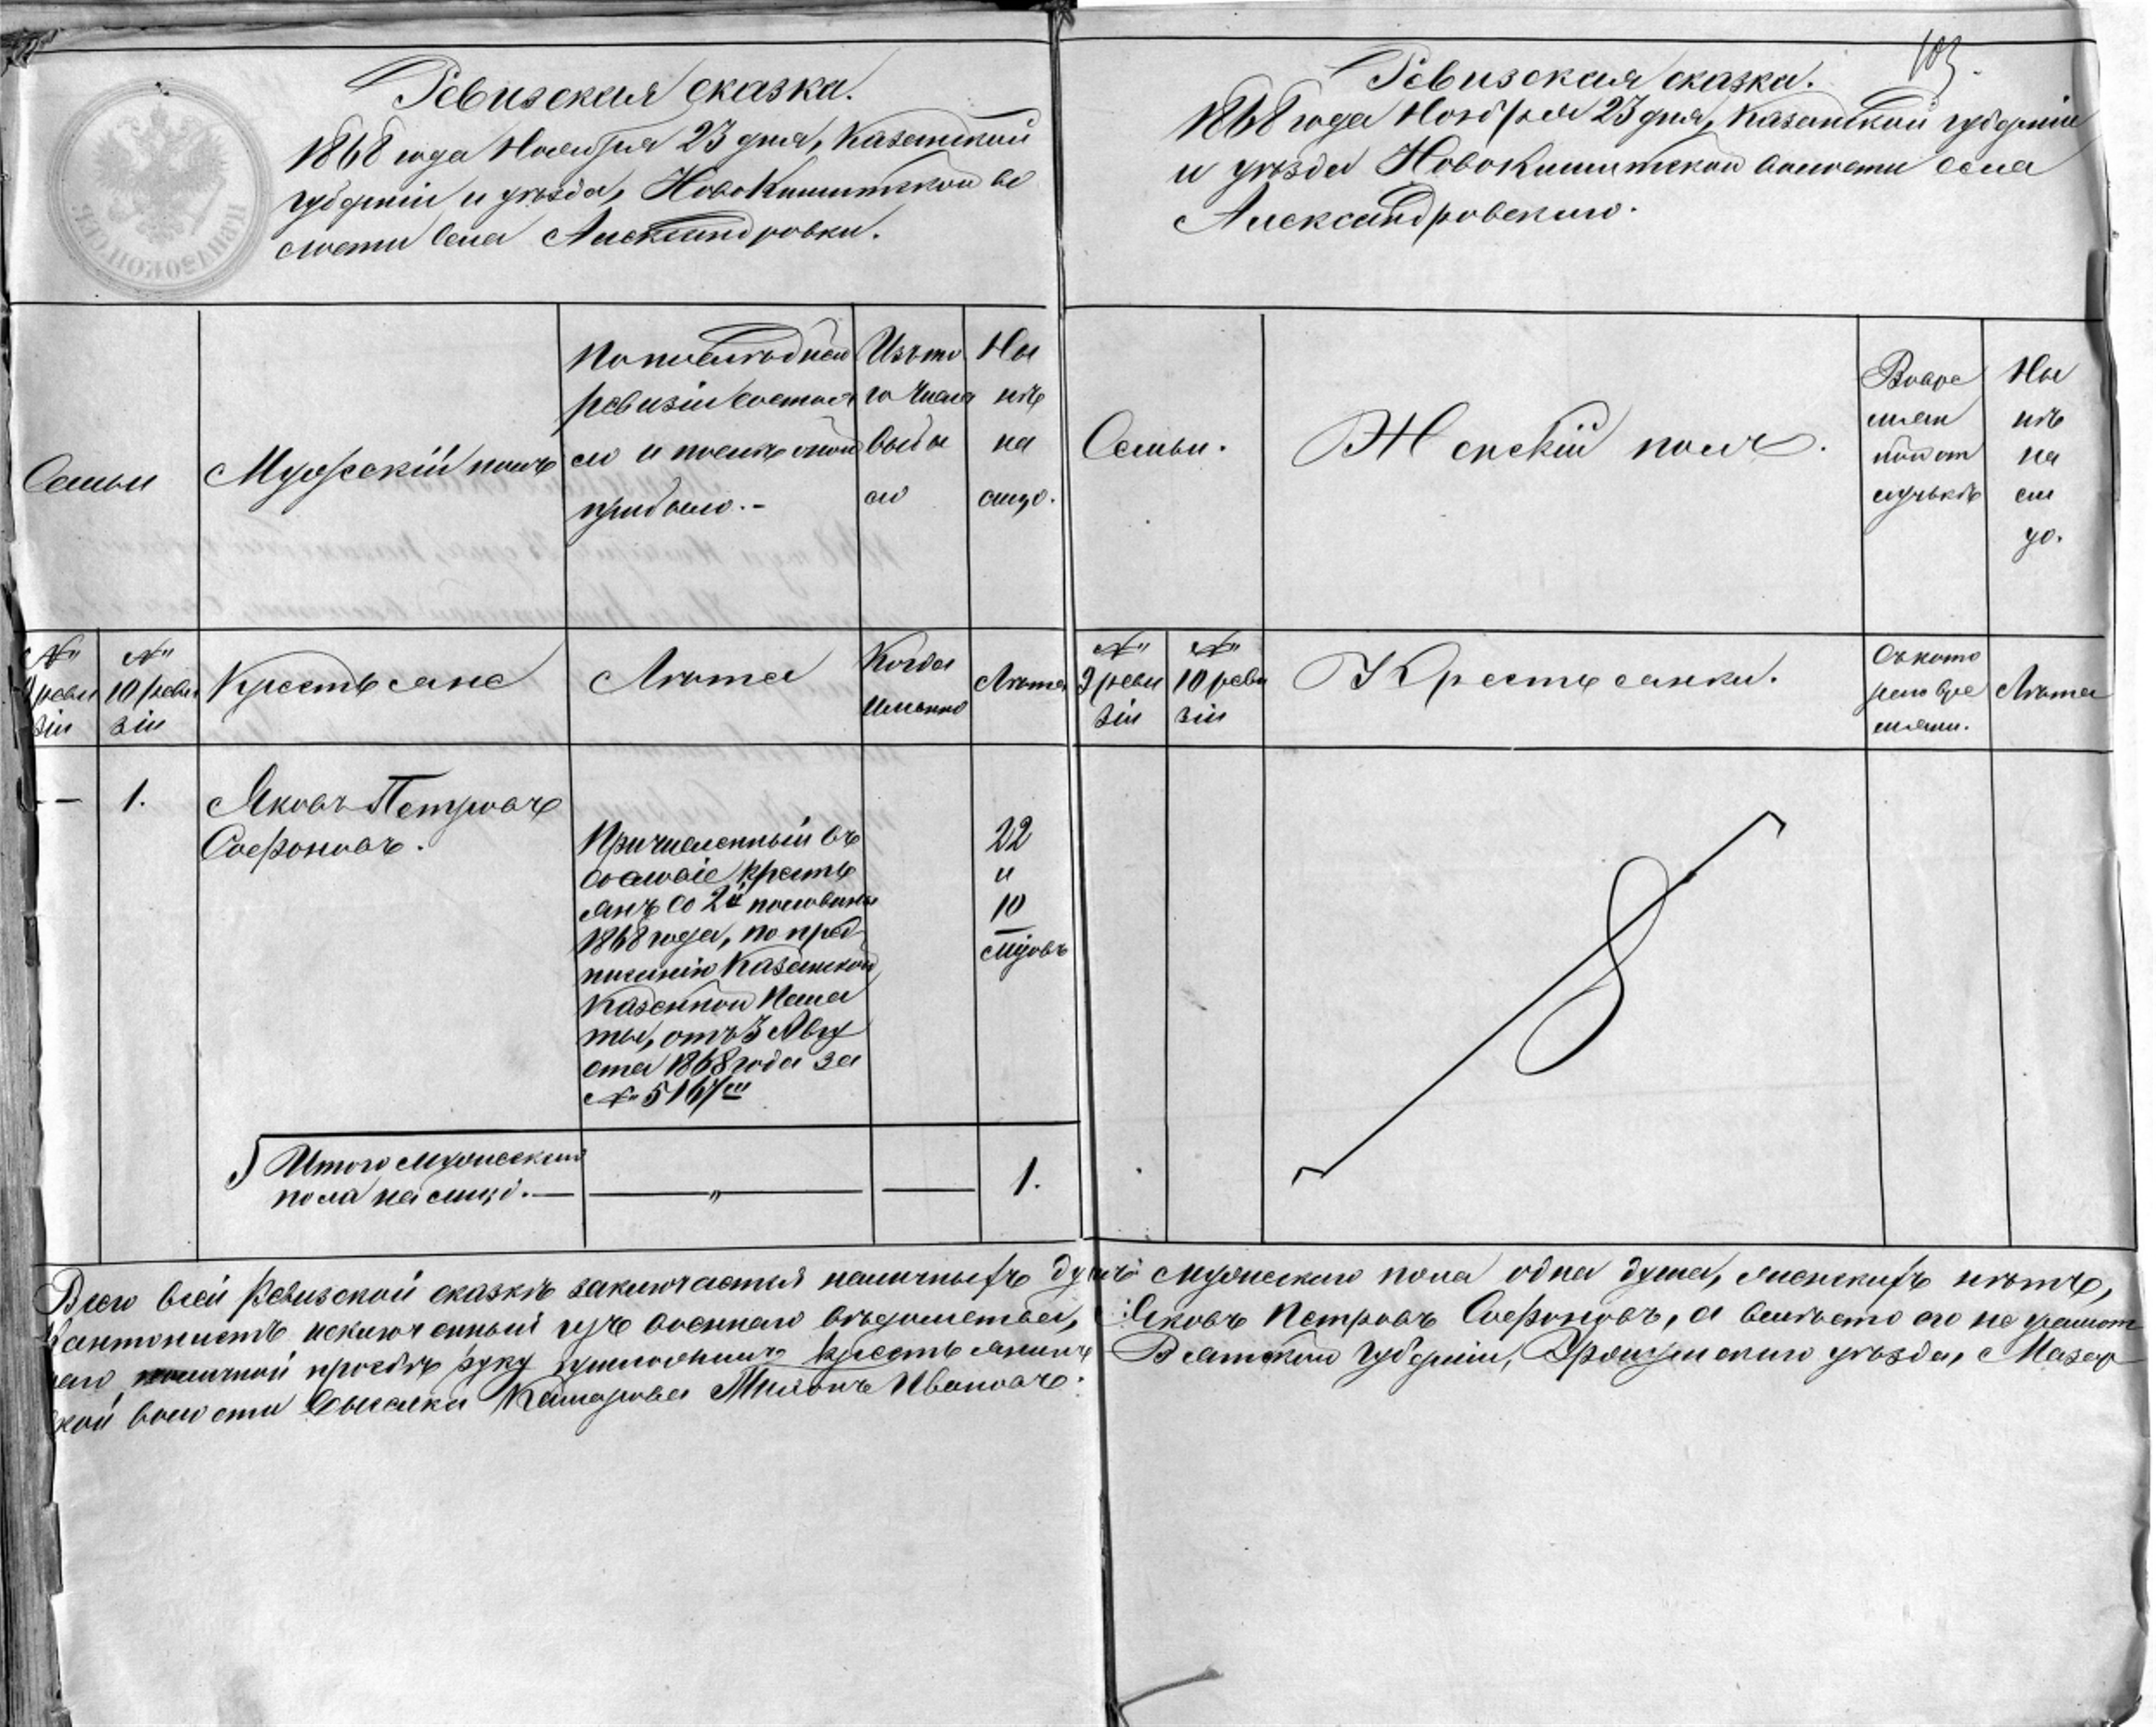 Ревизская сказка.
1868 года Ноября 23 дня, Казанской
губерніи и уѣзда, Новокишитской во
лости села Александровки.
103.
Ревизская сказка.
1868 года Ноября 23 дня, Казанской губерніи
и уѣзда Новокишитской волости села
Александровскаго.
Семьи
Мужескій полъ
По послѣдней
ревизіи состоя
ло и послѣ оной
прибыло.-
Изъ то
го числа
выбы
ло
Ны
нѣ
на
лицо.
Семьи.
Женскій полъ.
Вовре
мен
ной от
лучькѣ
Ны
нѣ
на
ли
цо.
№
9 реви
зіи
№
10 реви
зіи
Крестьяне
Лѣта
Когда
именно
Лѣта
№
9 реви
зіи
№
10 реви
зіи
Крестьянки.
Съ кото
раго вре
мени.
Лѣта
— 1. Яковъ Петровъ
Софоновъ.
Причисленный въ
сословіе кресть
янъ со 2й половины
1868 года, по пред
писанію Казанской
Казенной Пала
ты, отъ 3 Авгу
ста 1868 года за
№ 5167
22
"
10
Итого мужескаго
пола на лицо. — — " — — 1.
Всего всей Ревизской сказкѣ заключается наличныхъ душъ мужескаго пола одна душа, женскихъ нѣтъ,
Кантонистъ исключенный изъ военнаго вѣдомства, Яковъ Петровъ Софоновъ, а вмѣсто его не грамот
наго личной просьбѣ руку приложилъ крестьянинъ Вятской Губерніи, Уржумскаго уѣзда, Мазар
ской волости Ивановъ.